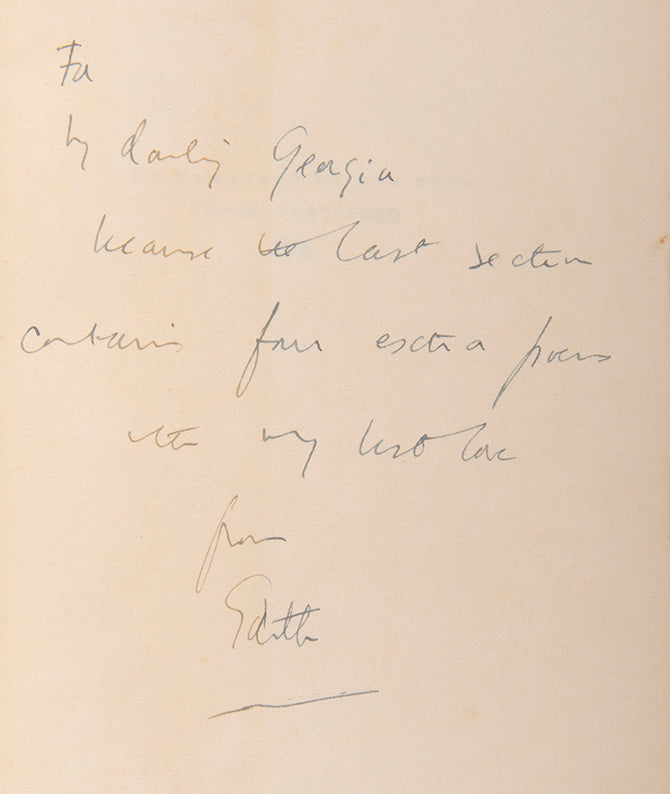 For
my darling Georgia
because the last section
contains four extra poems
with my best love
from
Edith